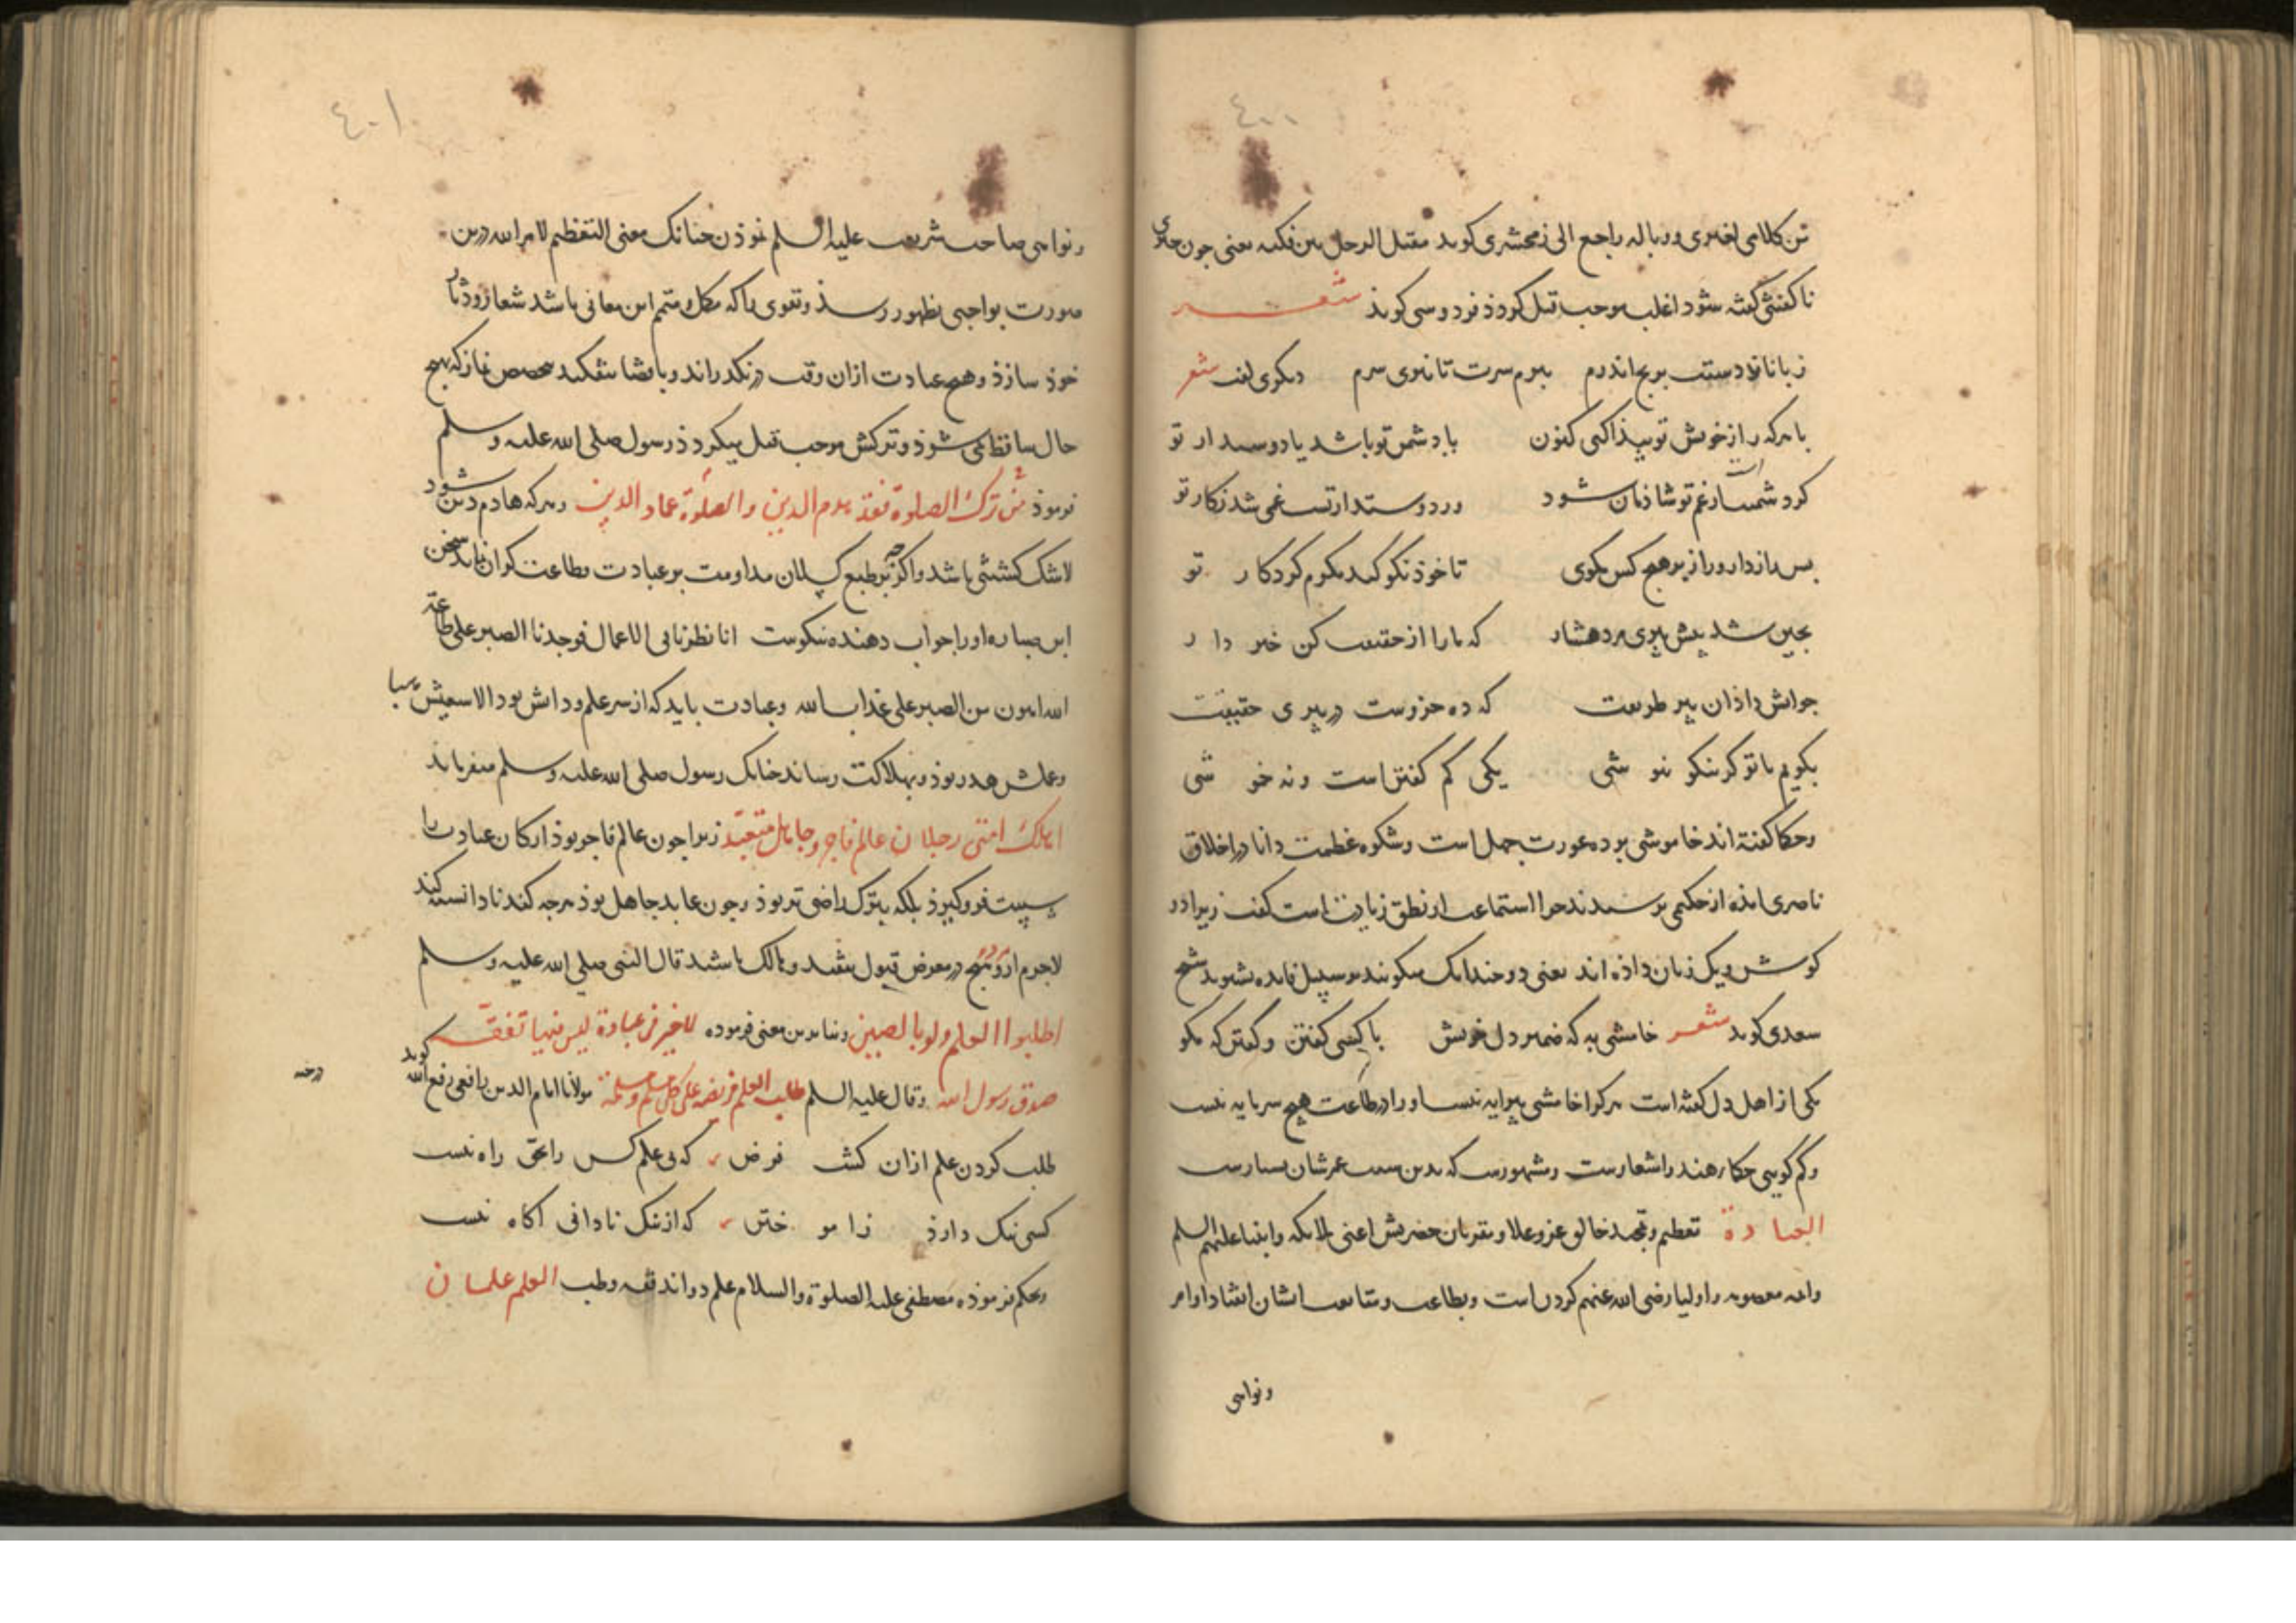 ٤٠٠
تن کلامی لغیری ووباله راجع الی زمحشری کوید مقتل الرجل بین فکیه یعنی جون
ناکفتنی کفته شود اغلب موجب قتل کردد فردوسی کوید شعر
زبانا دستت برنج اندرم ببرم سرت تا نبری سرم دیکری کفت شعر
با هرکه راز خویش تو پیدا کنی کنون یا دشمن تو باشد یا دوستدار تو
کر دشمنست از غم تو شاذمان شود ور دوستدار تست غمی شد زکار تو
بس راز دار و راز بر هیچ کس مکوی تا خوذ نکو کند بکرم کردکار تو
جنین شد پیش پیری مرد هشیار که ما را از حقیقت کن خبر دار
جوابش داذ آن پیر طریقت که ده جزوست در پیری حقیقت
بکویم با تو کر نیکو نیوشی یکی کم کفتن است و نه خموشی
وحکما کفته اند خاموشی برده عورت جهل است وشکوه عظمت دانا در اخلاق
ناصری امذه از حکیمی برسیدند جرا استماعت از نطق زیادت است کفت زیرا دو
کوش ویک زبان داذه اند یعنی دو جندانک میکویند می شنوید شیخ
سعدی کوید شعر خامشی به که ضمیر دل خویش با کسی کفتن و کفتن که مکو
یکی از اهل دل کفته است هرکرا خامشی پیرایه نیست او را در طاعت هیچ سرمایه نیست
وکم کویی حکماء هند را شعارست ومشهورست که بدین سبب عمرشان بسیارست
العبادة تعظیم وتمجید خالق عز وعلا ومقربان حضرتش اعنی ملایکه وانبیا علیهم السلم
وایمه معصوم واولیا رضی الله عنهم کردن است وبطاعت ومتابعت ایشان انقیاد اوامر
ونواهی
٤٠١
ونواهی صاحب شریعت علیه السلم نموذن جنانک معنی التعظیم لامر الله درین
صورت بواجبی بظهور رسذ وتقوی را که مکمل ومتمم این معانی باشد شعار ودثار
خوذ سازذ وهیچ عبادت از ان وقت درنکذراند وبا قضا نیفکند نماز که بهیچ
حال ساقط نمی شوذ وترکش موجب قتل میکردذ رسول صلی الله علیه وسلم
فرموذ من ترک الصلوة فقد هدم الدین والصلوة عماد الدین وهرکه هادم دین شود
لاشک کشتنی باشد واکر جه بر طبع کسلان مداومت بر عبادت وطاعت کران نماید سخن
ابن صباره او را جواب دهنده نیکوست انا نظرنا فی الاعمال فوجدنا الصبر علی طاعة
الله اهون من الصبر علی عذاب الله وعبادت باید که از سر علم ودانش بود والا سعیش هبا
وعملش هدر بوذ وبهلاکت رساند جنانک رسول صلی الله علیه وسلم میفرماید
اهلک امتی رجلان عالم فاجر وجاهل متعبد زیرا جون عالم فاجر بوذ ارکان عبادت را
سست فرو کیرذ بلکه بترک راضی تر بوذ وجون عابد جاهل بوذ هرجه کند نادانسته کند
لاجرم ازو هیج در معرض قبول نیفتد وهالک باشد قال النبی صلی الله علیه وسلم
اطلبوا العلم ولو بالصین وبنا برین معنی فرموده لا خیر فی عبادة لیس فیها تفقه
صدق رسول الله وقال علیه السلم طلب العلم فریضة علی کل مسلم ومسلمة مولانا امام الدین رافعی رفع الله درجته کوید
طلب کردن علم ازان کشت فرض که بی علم کس را بحق راه نیست
کسی ننک دارذ ز اموختن که از ننک نادانی اکاه نیست
وبحکم فرموذه مصطفی علیه الصلوة والسلام علم دو اند فقه وطب العلم علمان